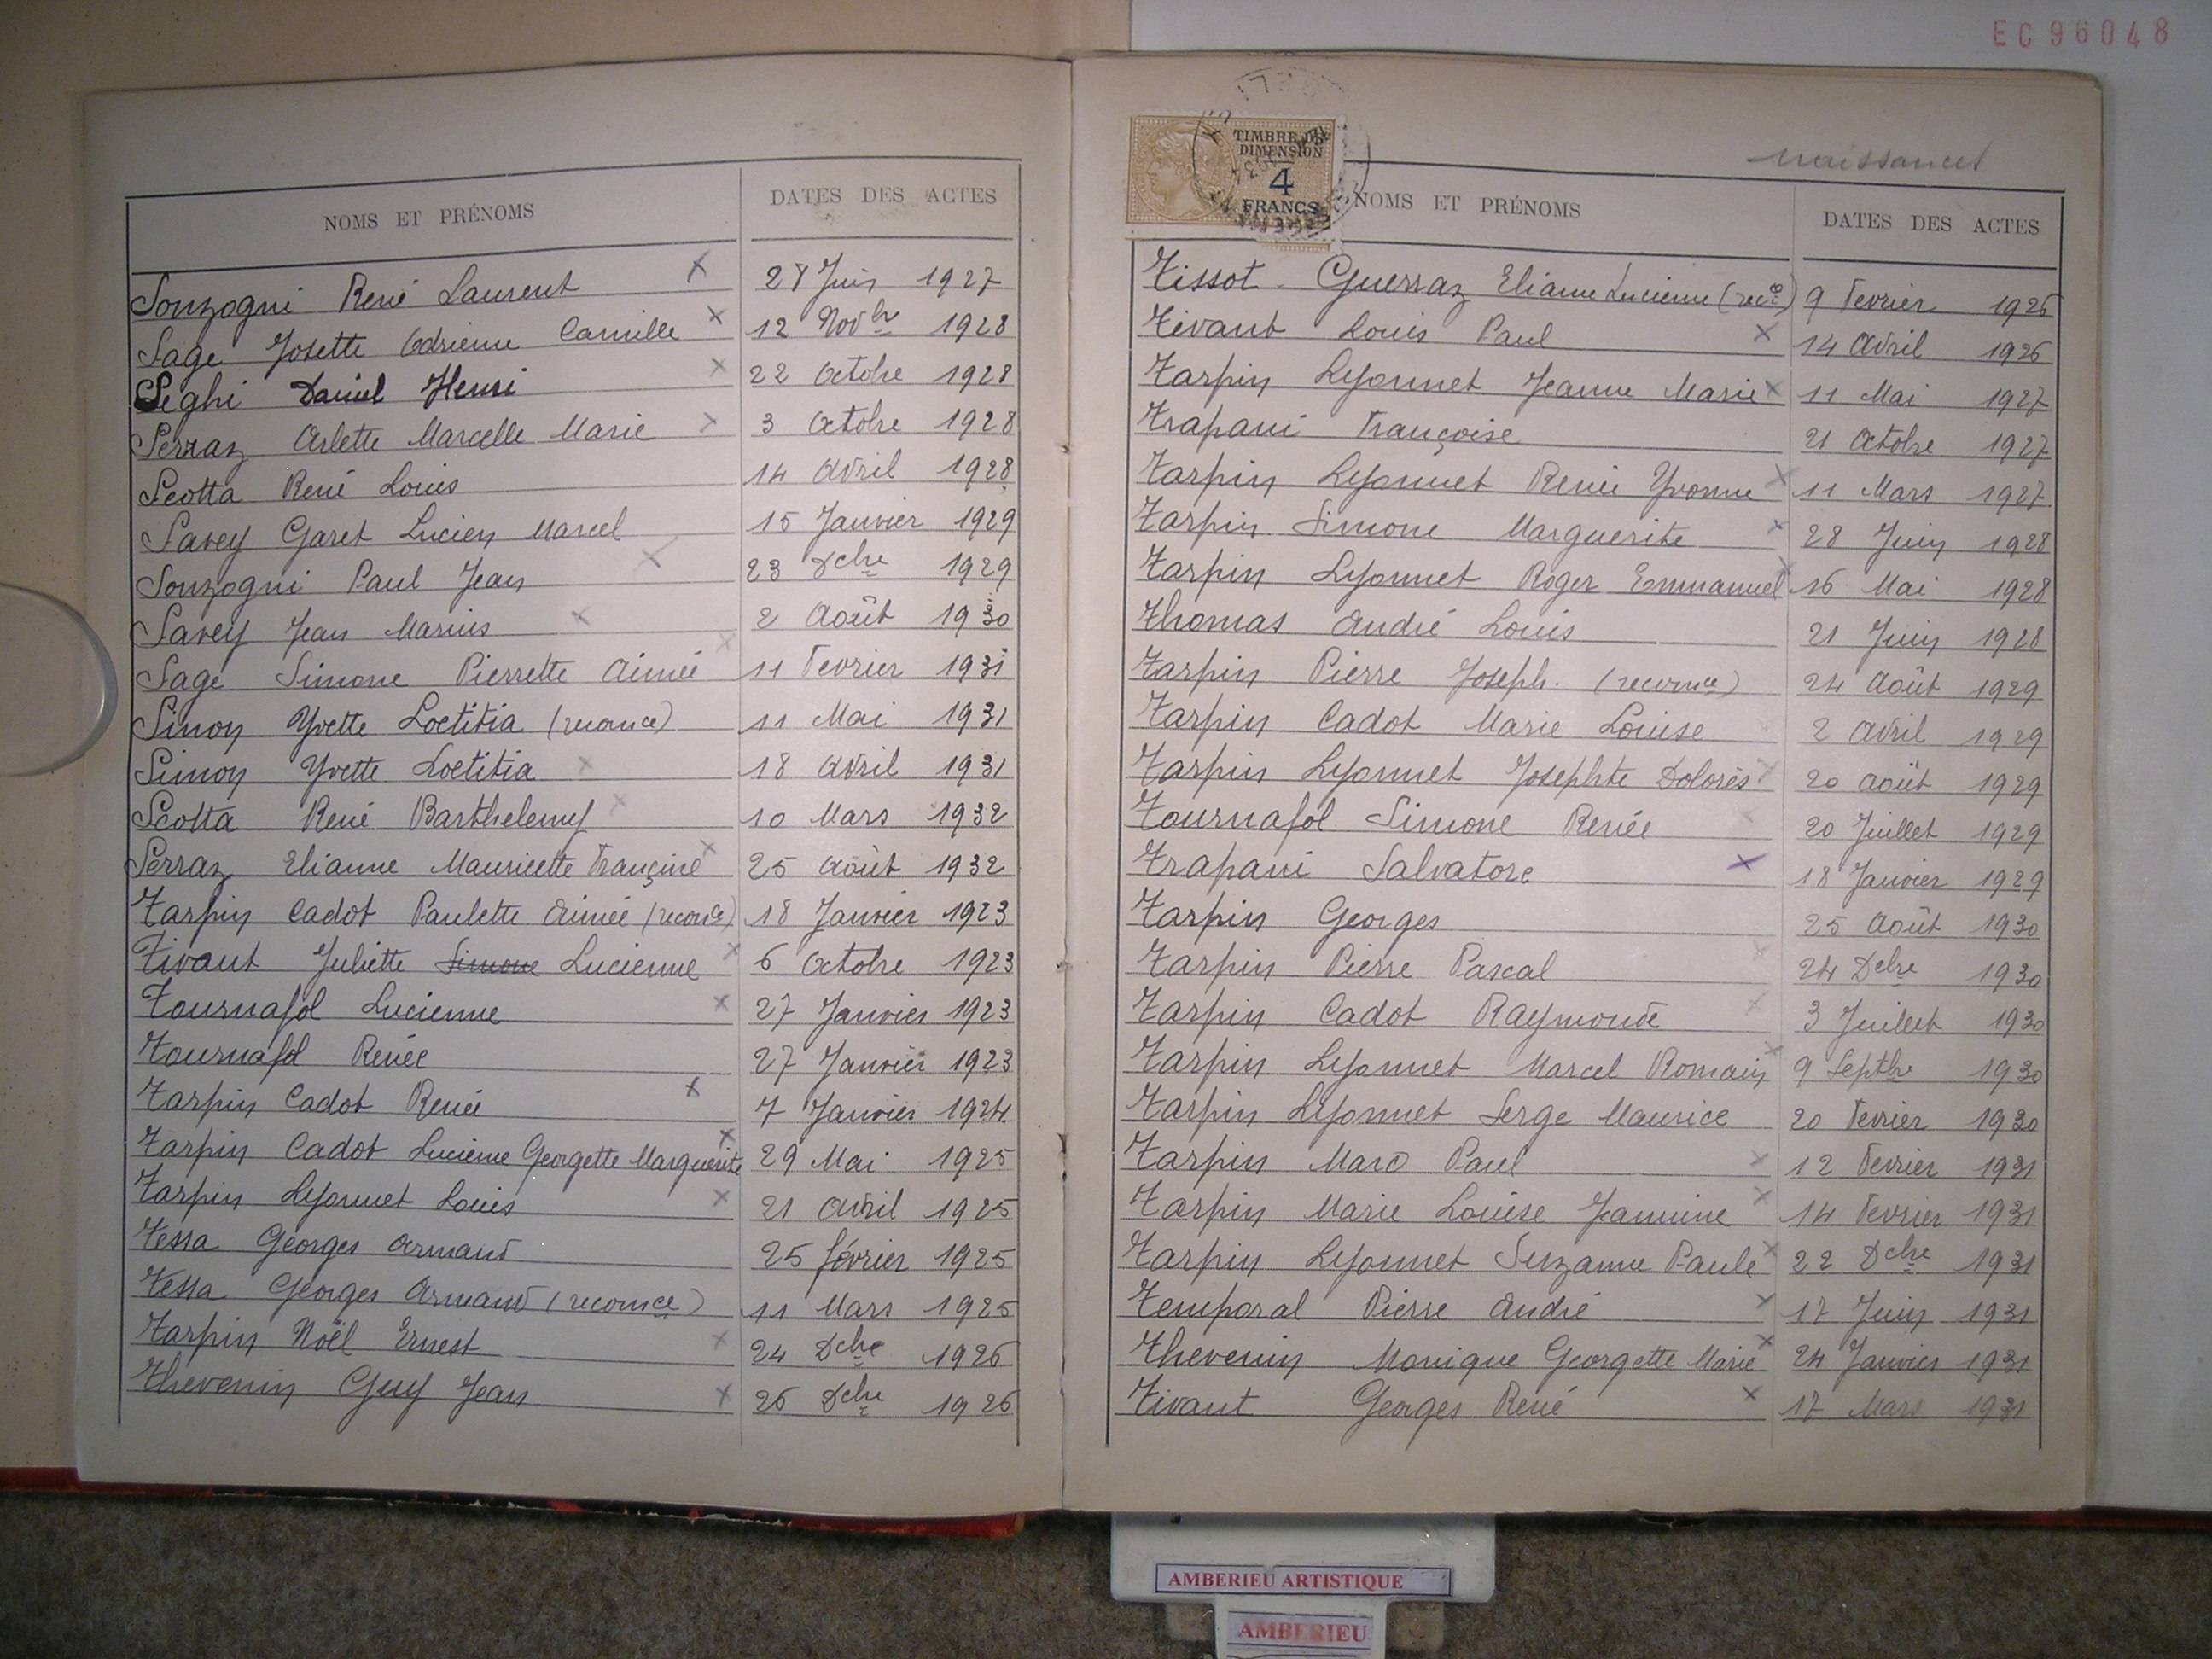 EC96048
NOMS ET PRÉNOMS DATES DES ACTES
Sonzogni René Laurent x 28 Juin 1927
Sage Josette Adrienne Camille x 12 Novbre 1928
Seghi Daniel Henri x 22 Octobre 1928
Serraz Arlette Marcelle Marie x 3 Octobre 1928
Scotta René Louis 14 Avril 1928
Savey Garet Lucien Marcel 15 Janvier 1929
Sonzogni Paul Jean x 23 Dcbre 1929
Savey Jean Marius x 2 Août 1930
Sage Simone Pierrette Aimée x 11 Fevrier 1931
Simon Yvette Loetitia (reconnce) 11 Mai 1931
Simon Yvette Loetitia x 18 Avril 1931
Scotta René Barthelemy x 10 Mars 1932
Serraz Elianne Mauricette Françine x 25 Août 1932
Tarpin Cadot Paulette Aimée (reconce) 18 Janvier 1923
Tivant Juliette Simone Lucienne x 6 Octobre 1923
Tournafol Lucienne x 27 Janvier 1923
Tournafol Renée 27 Janvier 1923
Tarpin Cadot Renée x 7 Janvier 1924
Tarpin Cadot Lucienne Georgette Marguerite x 29 Mai 1925
Tarpin Lyonnet Louis x 21 Avril 1925
Tessa Georges Armand 25 février 1925
Tessa Georges Armand (reconnce) 11 Mars 1925
Tarpin Noël Ernest x 24 Dcbre 1926
Thevenin Guy Jean x 26 Dcbre 1926
naissances
TIMBRE DE
DIMENSION
4
FRANCS
NOMS ET PRÉNOMS DATES DES ACTES
Tissot-Guerraz Elianne Lucienne (recce) 9 Fevrier 1926
Tivant Louis Paul x 14 Avril 1926
Tarpin Lyonnet Jeanne Marie x 11 Mai 1927
Trapani Françoise 21 Octobre 1927
Tarpin Lyonnet Renée Yvonne x 11 Mars 1927
Tarpin Simone Marguerite x 28 Juin 1928
Tarpin Lyonnet Roger Emmanuel x 16 Mai 1928
Thomas André Louis 21 Juin 1928
Tarpin Pierre Joseph. (reconnce) 24 Août 1929
Tarpin Cadot Marie Louise 2 Avril 1929
Tarpin Lyonnet Josephte Dolorès x 20 Août 1929
Tournafol Simone Renée x 20 Juillet 1929
Trapani Salvatore x 18 Janvier 1929
Tarpin Georges 25 Août 1930
Tarpin Pierre Pascal x 24 Dcbre 1930
Tarpin Cadot Raymonde x 3 Juillet 1930
Tarpin Lyonnet Marcel Romain x 9 Septbre 1930
Tarpin Lyonnet Serge Maurice 20 Fevrier 1930
Tarpin Marc Paul x 12 Fevrier 1931
Tarpin Marie Louise Jeannine x 14 Fevrier 1931
Tarpin Lyonnet Suzanne Paule x 22 Dcbre 1931
Temporal Pierre André x 17 Juin 1931
Thevenin Monique Georgette Marie x 24 Janvier 1931
Tivant Georges René x 17 Mars 1931
AMBERIEU ARTISTIQUE
AMBERIEU